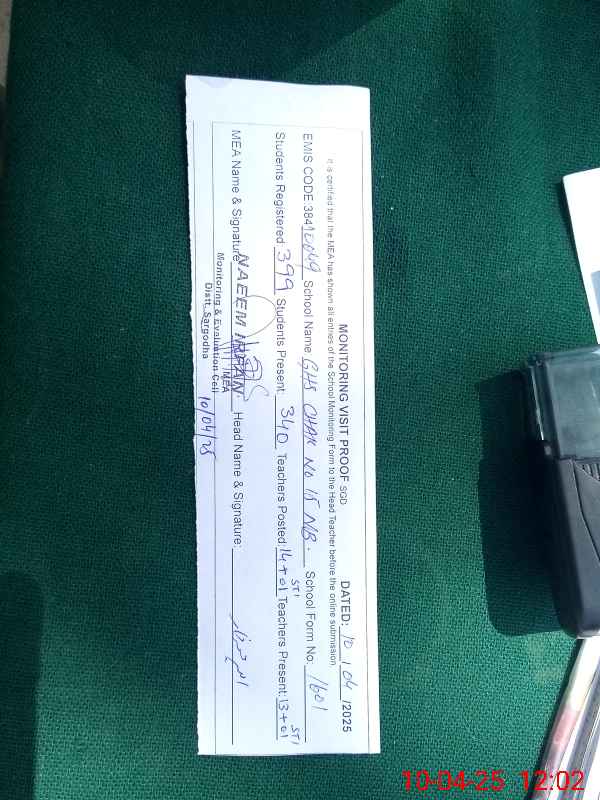 MONITORING VISIT PROOF SGD DATED: 10 / 04 /2025
It is certified that the MEA has shown all entries of the School Monitoring Form to the Head Teacher before the online submission
EMIS CODE 38410049 School Name GHS CHAK No 15 NB. School Form No: 1601
Students Registered: 399 Students Present: 340 Teachers Posted: 14+01 STI Teachers Present: 13+01 STI
MEA Name & Signature NAEEM IRFAN. Head Name & Signature:
MEA
Monitoring & Evaluation Cell
Distt. Sargodha
10/04/25
10-04-25 12:02